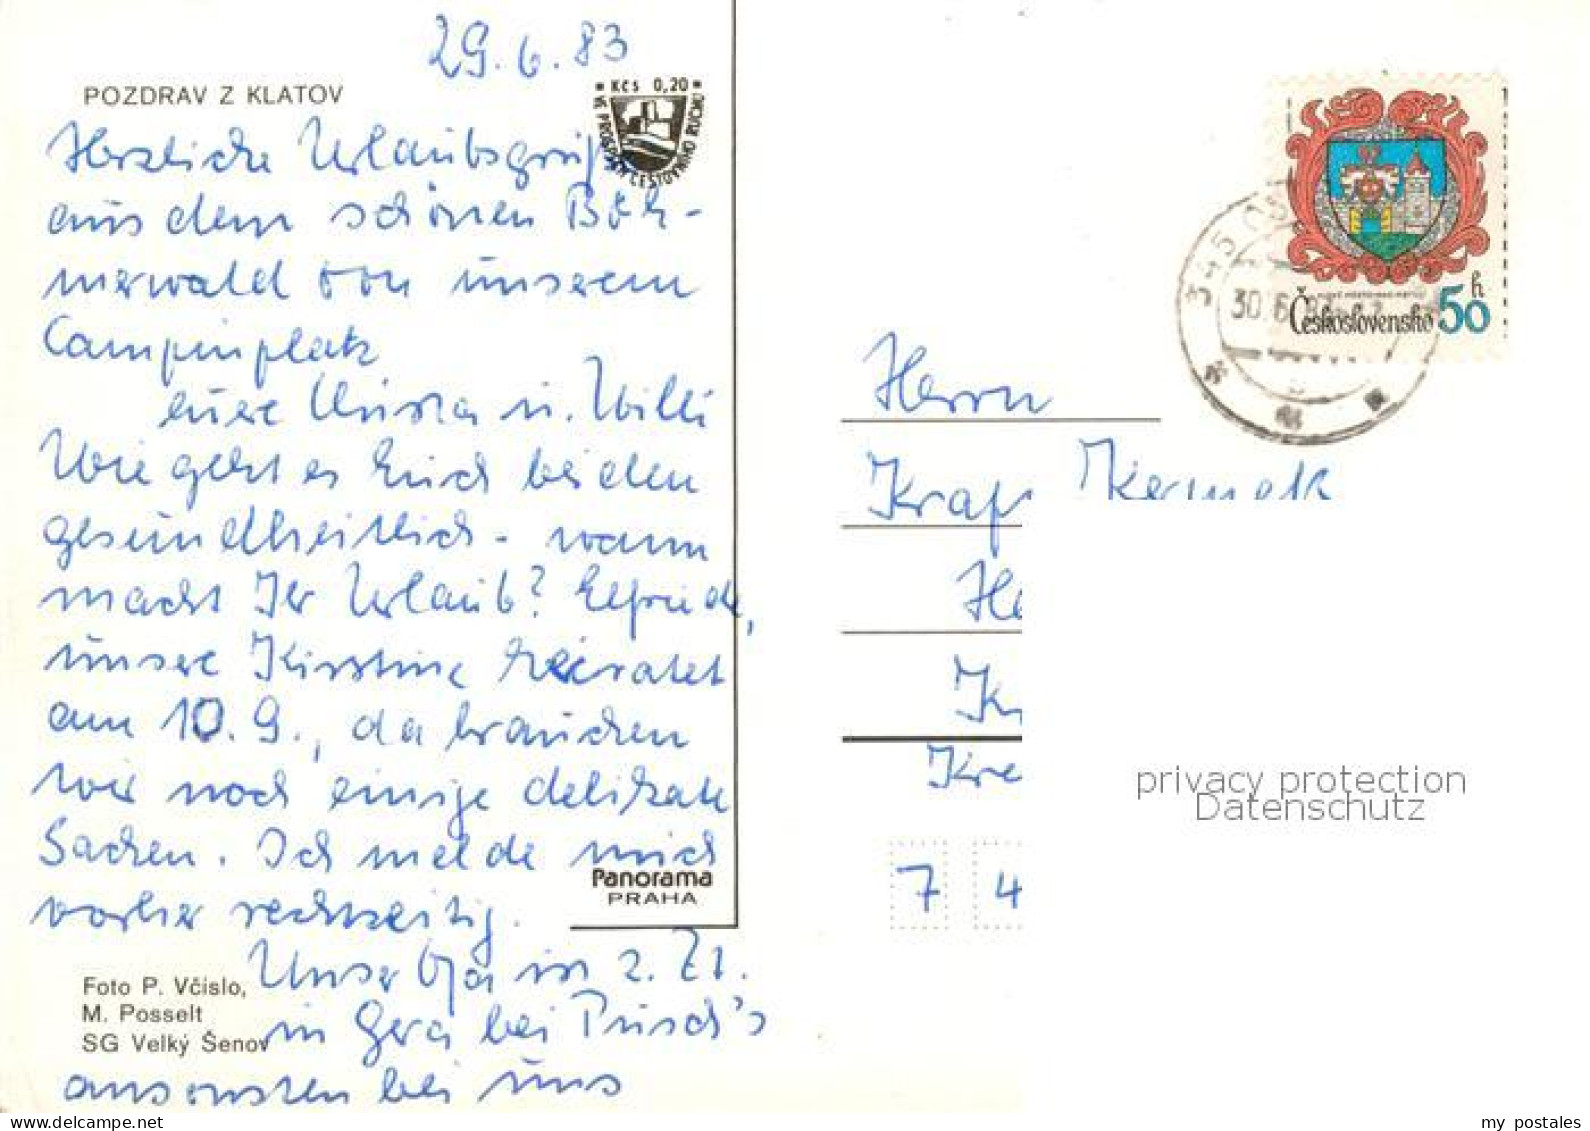 29.6.83
POZDRAV Z KLATOV
Kčs 0,20
Herzliche Urlaubsgrüße
aus dem schönen Böh-
merwald von unserem
Campinplatz
eure Christa u. Willi
Wie geht es Euch beiden
gesundheitlich - wann
macht Ihr Urlaub? Elfriede,
unsere Kirstine heiratet
am 10.9., da brauchen
wir noch einige delikate
Sachen. Ich melde mich
vorher rechtzeitig.
Unser Opa in z. Zt.
in Gera bei Pusch's
ansonsten bei uns
Panorama
PRAHA
Foto P. Včislo,
M. Posselt
SG Velký Šenov
30.6.83
Československo 50 h
Herrn
Kraf
He
Kr
Kre
7 4
privacy protection
Datenschutz
my postales